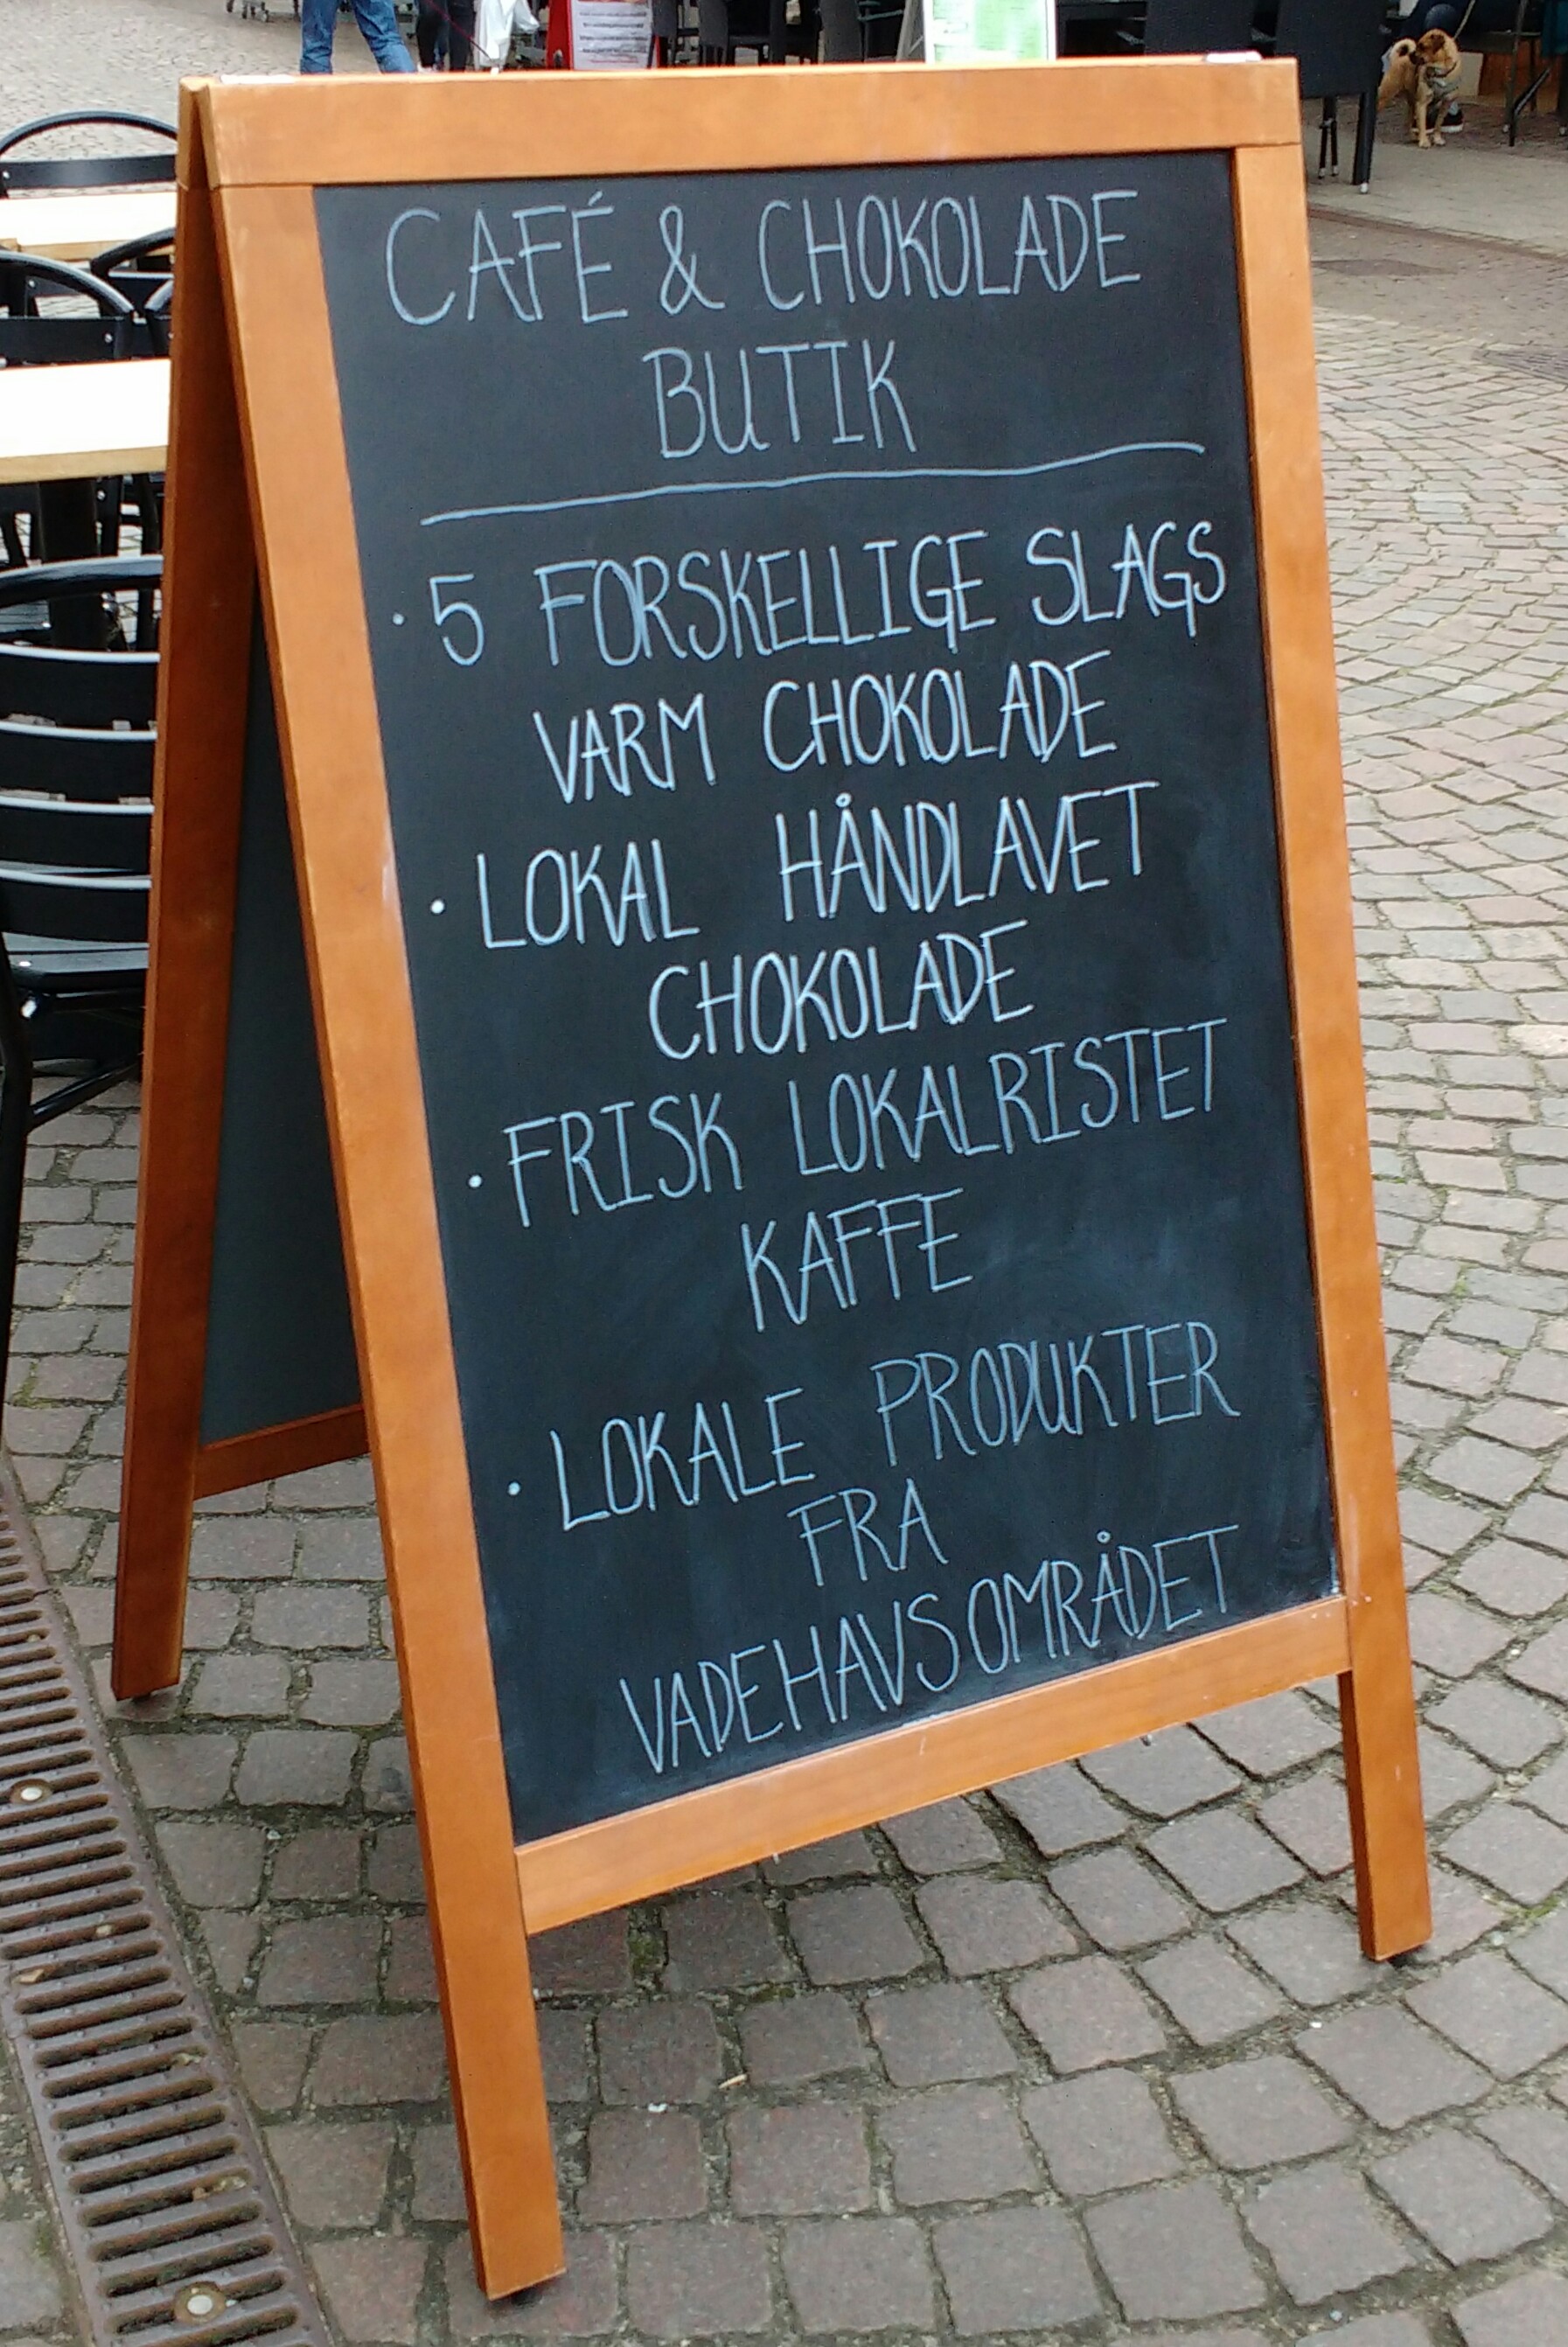 CAFÉ & CHOKOLADE
BUTIK
· 5 FORSKELLIGE SLAGS
VARM CHOKOLADE
· LOKAL HÅNDLAVET
CHOKOLADE
· FRISK LOKALRISTET
KAFFE
· LOKALE PRODUKTER
FRA
VADEHAVSOMRÅDET